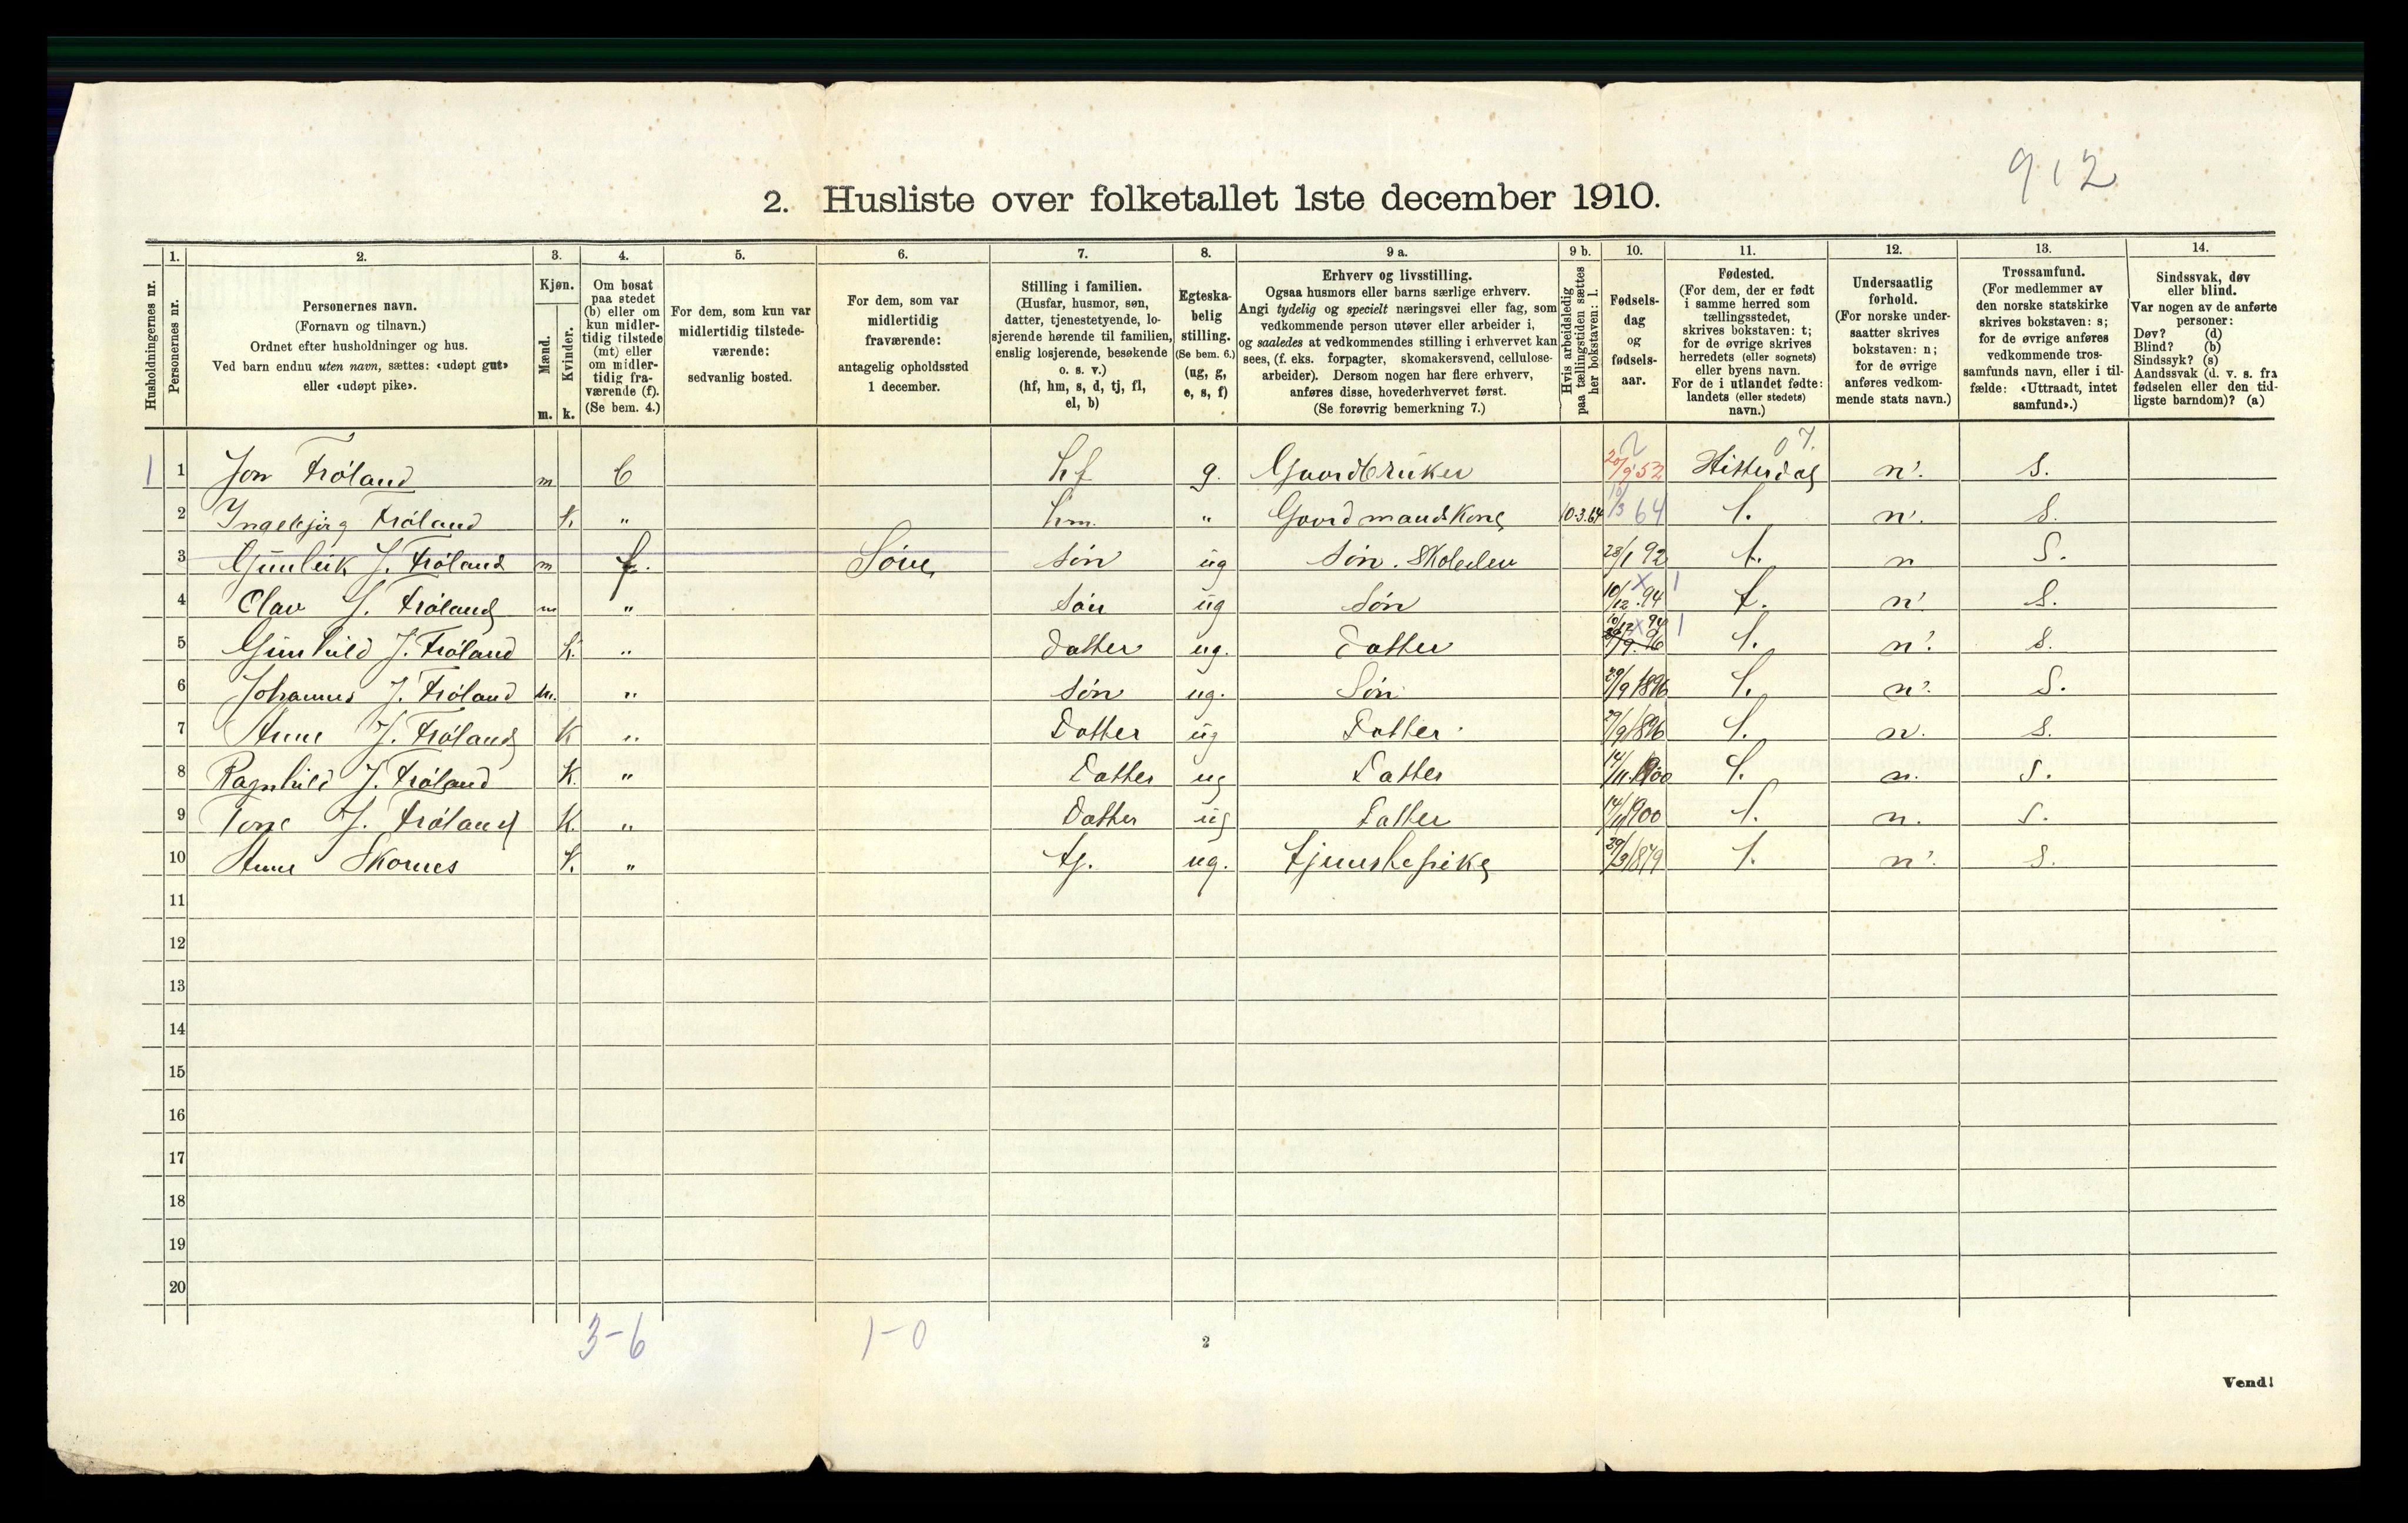 912
2. Husliste over folketallet 1ste december 1910.
Husholdningernes nr.
1.
Personernes nr.
2.
Personernes navn.
(Fornavn og tilnavn.)
Ordnet efter husholdninger og hus.
Ved barn endnu uten navn, sættes: «udøpt gut»
eller «udøpt pike».
3.
Kjøn.
Mænd.
Kvinder.
m. k.
4.
Om bosat
paa stedet
(b) eller om
kun midler-
tidig tilstede
(mt) eller
om midler-
tidig fra-
værende (f).
(Se bem. 4.)
5.
For dem, som kun var
midlertidig tilstede-
værende:
sedvanlig bosted.
6.
For dem, som var
midlertidig
fraværende:
antagelig opholdssted
1 december.
7.
Stilling i familien.
(Husfar, husmor, søn,
datter, tjenestetyende, lo-
sjerende hørende til familien,
enslig losjerende, besøkende
o. s. v.)
(hf, hm, s, d, tj, fl,
el, b)
8.
Egteska-
belig
stilling.
(Se bem. 6.)
(ug, g,
e, s, f)
9 a.
Erhverv og livsstilling.
Ogsaa husmors eller barns særlige erhverv.
Angi tydelig og specielt næringsvei eller fag, som
vedkommende person utøver eller arbeider i,
og saaledes at vedkommendes stilling i erhvervet kan
sees, (f. eks. forpagter, skomakersvend, cellulose-
arbeider). Dersom nogen har flere erhverv,
anføres disse, hovederhvervet først.
(Se forøvrig bemerkning 7.)
9 b.
Hvis arbeidsledig
paa tællingstiden sættes
her bokstaven: l.
10.
Fødsels-
dag
og
fødsels-
aar.
11.
Fødested.
(For dem, der er født
i samme herred som
tællingsstedet,
skrives bokstaven: t;
for de øvrige skrives
herredets (eller sognets)
eller byens navn.
For de i utlandet fødte:
landets (eller stedets)
navn.)
12.
Undersaatlig
forhold.
(For norske under-
saatter skrives
bokstaven: n;
for de øvrige
anføres vedkom-
mende stats navn.)
13.
Trossamfund.
(For medlemmer av
den norske statskirke
skrives bokstaven: s;
for de øvrige anføres
vedkommende tros-
samfunds navn, eller i til-
fælde: «Uttraadt, intet
samfund».)
14.
Sindssvak, døv
eller blind.
Var nogen av de anførte
personer:
Døv? (d)
Blind? (b)
Sindssyk? (s)
Aandssvak (d. v. s. fra
fødselen eller den tid-
ligste barndom)? (a)
1 1 Jon Frøland m b hf g. Gaardbruker 20/9 52 Hitterdal n. s.
2 Ingebjørg Frøland k. " hm. " Gaardmandskone 10.3.64 10/3 64 t. n. s.
3 Gunleik J. Frøland m f. Søve søn ug Søn. Skoleelev 28/1 92 t. n s.
4 Olav J. Frøland m " søn ug Søn 10/12 94 t. n. s.
5 Gunhild J. Frøland k. " datter ug. Datter 10/12 94 t. n. s.
6 Johannes J. Frøland m. " søn ug. Søn 29/9 1896 t. n. s.
7 Anne J. Frøland k " Datter ug Datter 29/9 1896 t. n. s.
8 Ragnhild J. Frøland k. " Datter ug Datter 14/11 1900 t. n. s.
9 Tone J. Frøland k. " Datter ug Datter 14/11 1900 t. n. s.
10 Anne Skornes k. " tj. ug. tjenestepike 29/3 1879 t. n. s.
11
12
13
14
15
16
17
18
19
20
3-6 1-0
2
Vend!